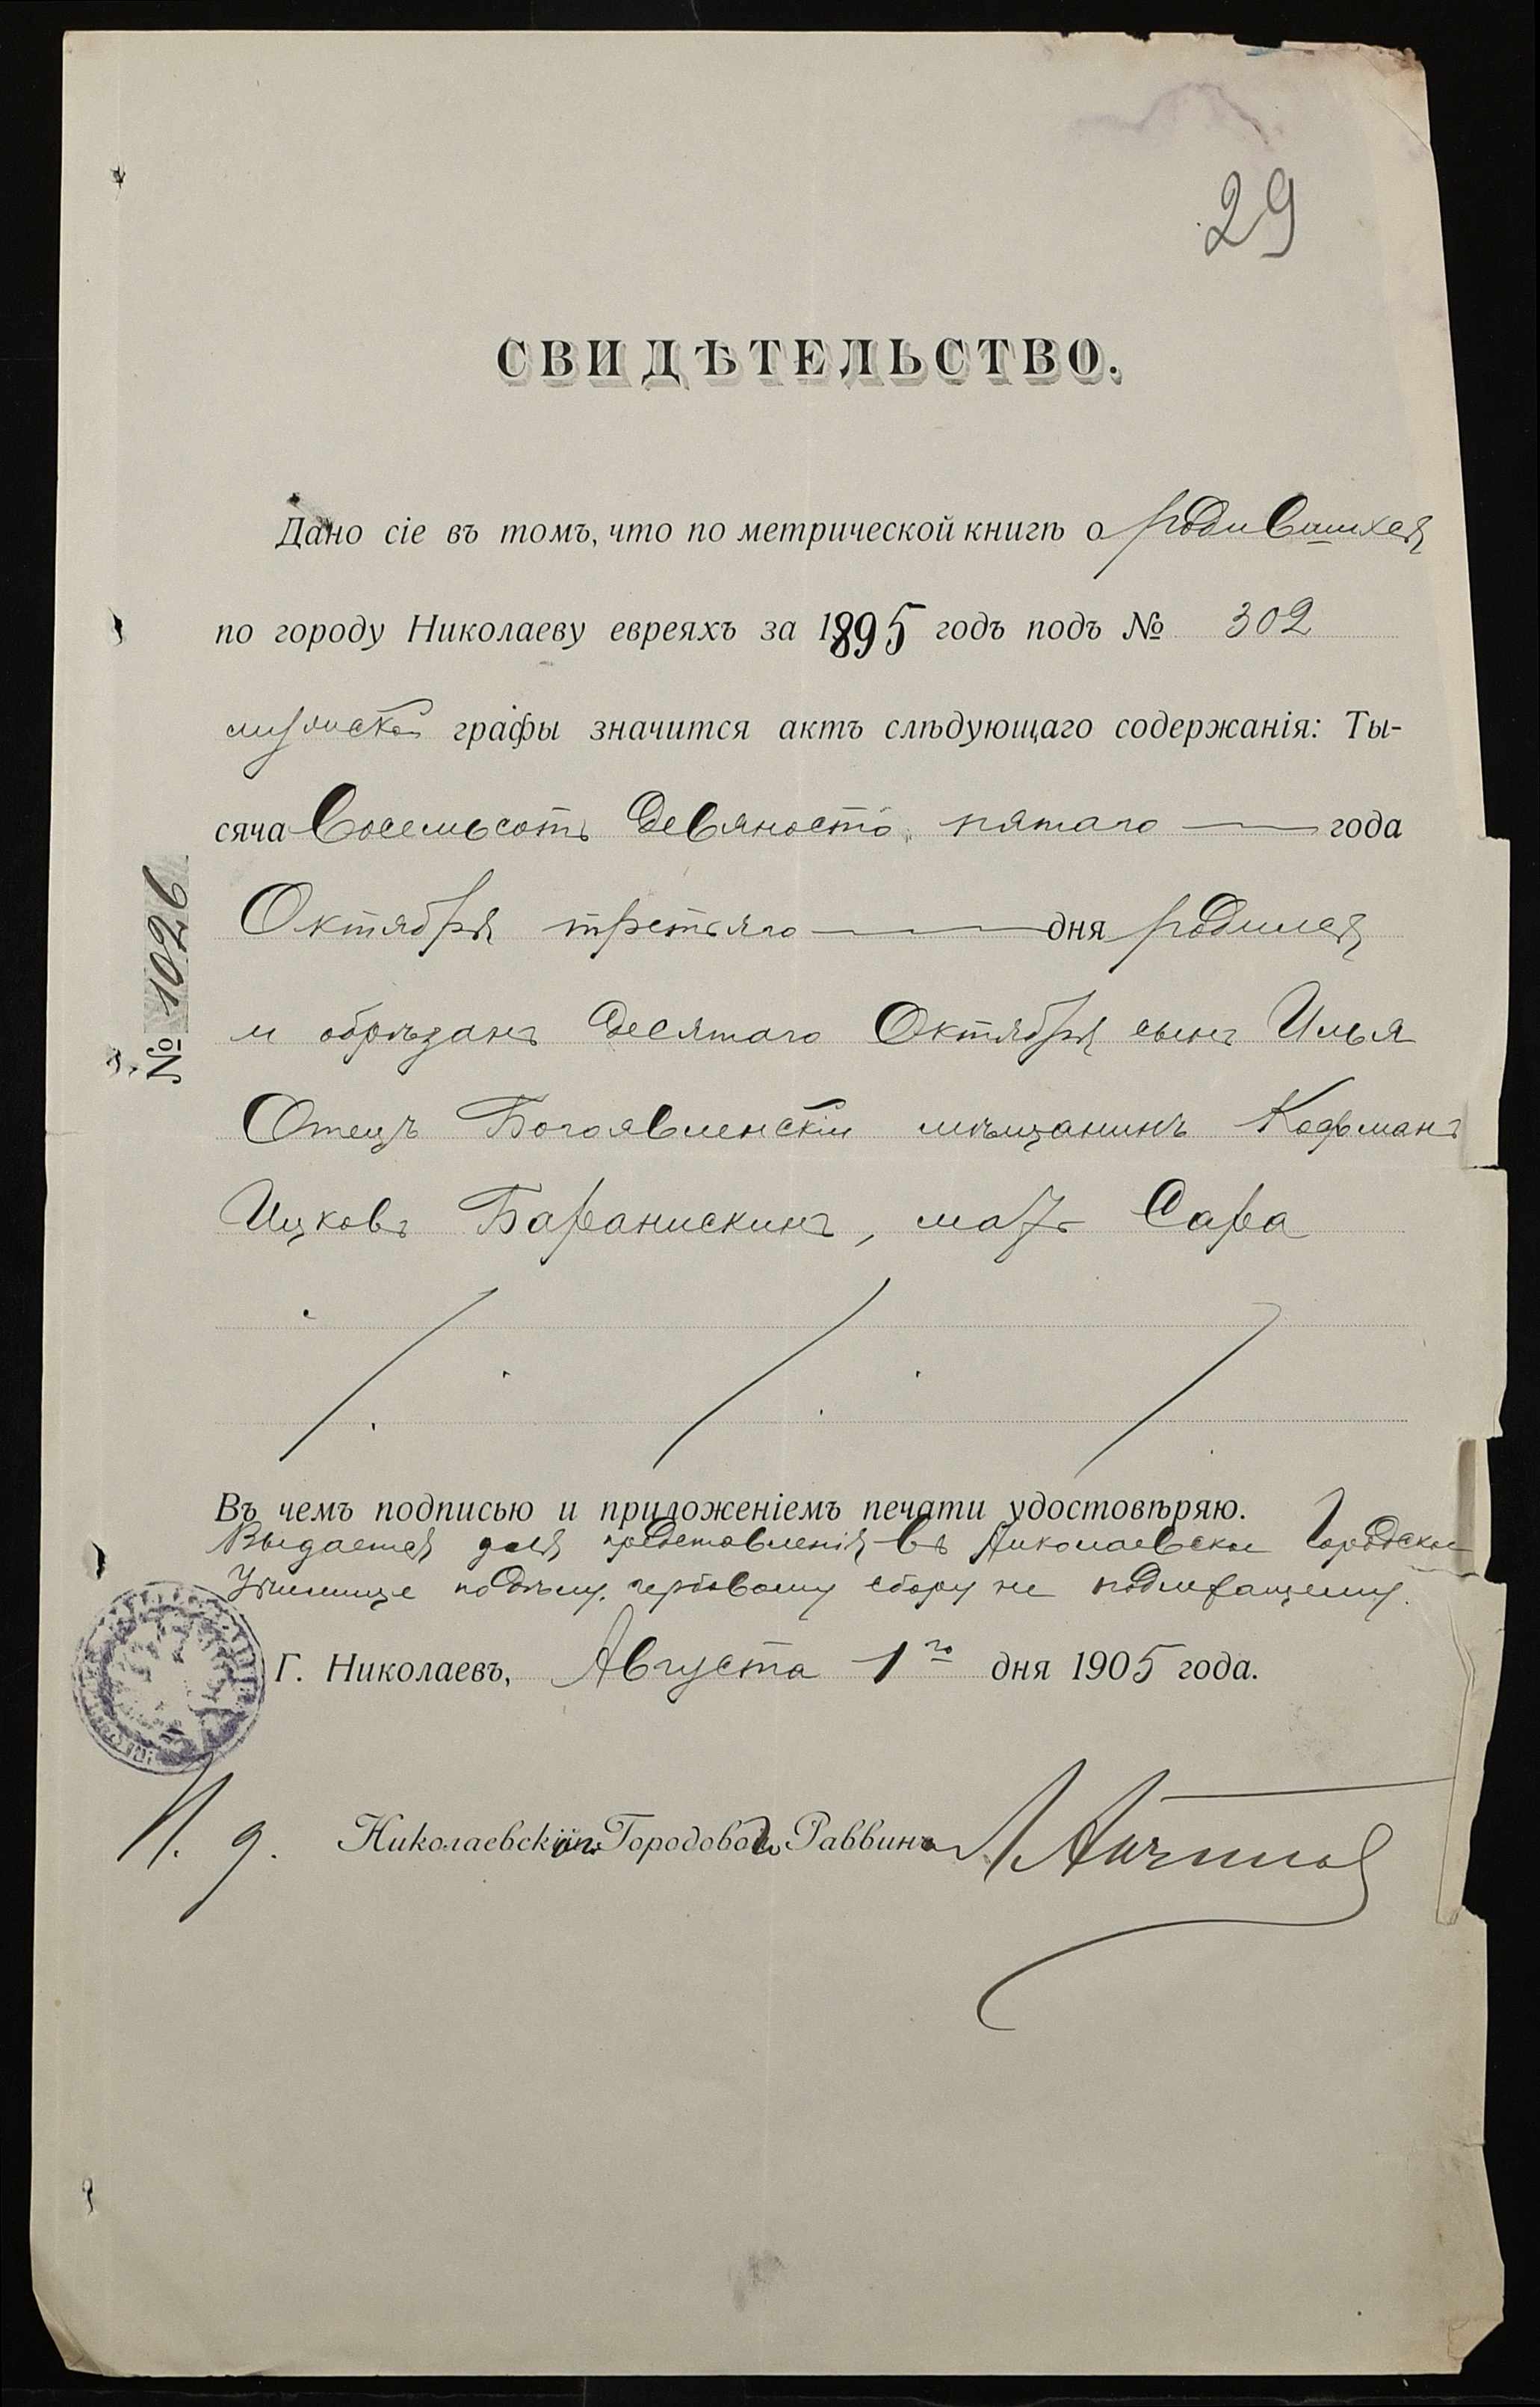 29
СВИДѢТЕЛЬСТВО.
Дано сіе въ томъ, что по метрической книгѣ о родившихся
по городу Николаеву евреяхъ за 1895 годъ подъ № 302
мужской графы значится актъ слѣдующаго содержанія: Ты-
сяча восемьсотъ девяносто пятаго года
Октября третьяго дня родился
и обрѣзанъ десятаго Октября сынъ Илья
Отецъ Богоявленскій мѣщанинъ Кофманъ
Ицковъ Баранискинъ, мать Сара
№ 1026
Въ чемъ подписью и приложеніемъ печати удостовѣряю.
Выдается для представленія въ Николаевское Городское
Училище подѣлу, гербовому сбору не подлежащему.
Г. Николаевъ, Августа 1го дня 1905 года.
И. д. Николаевскаго Городового Раввина